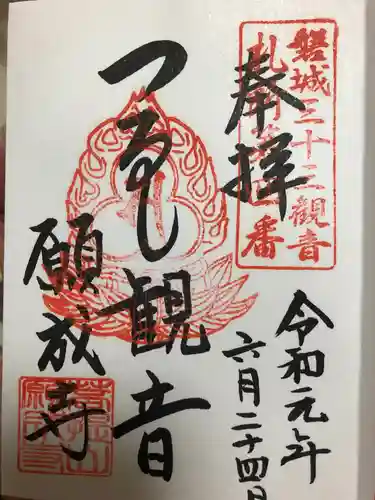 磐城三十三観音
札所第 番
奉拝
令和元年
六月二十四日
つるし観音
願成寺